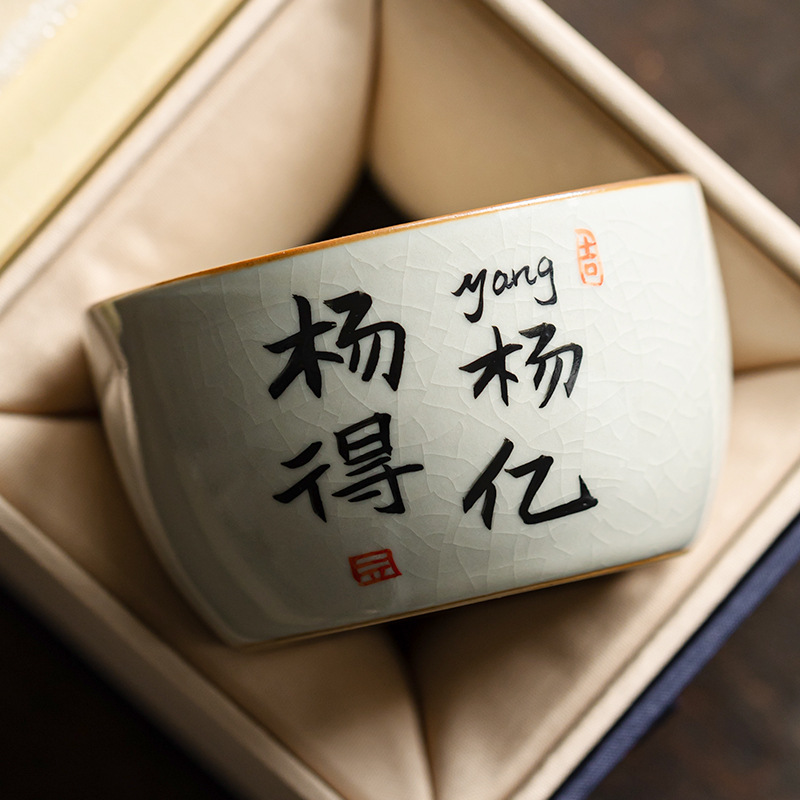 yang
杨亿
杨得
吉